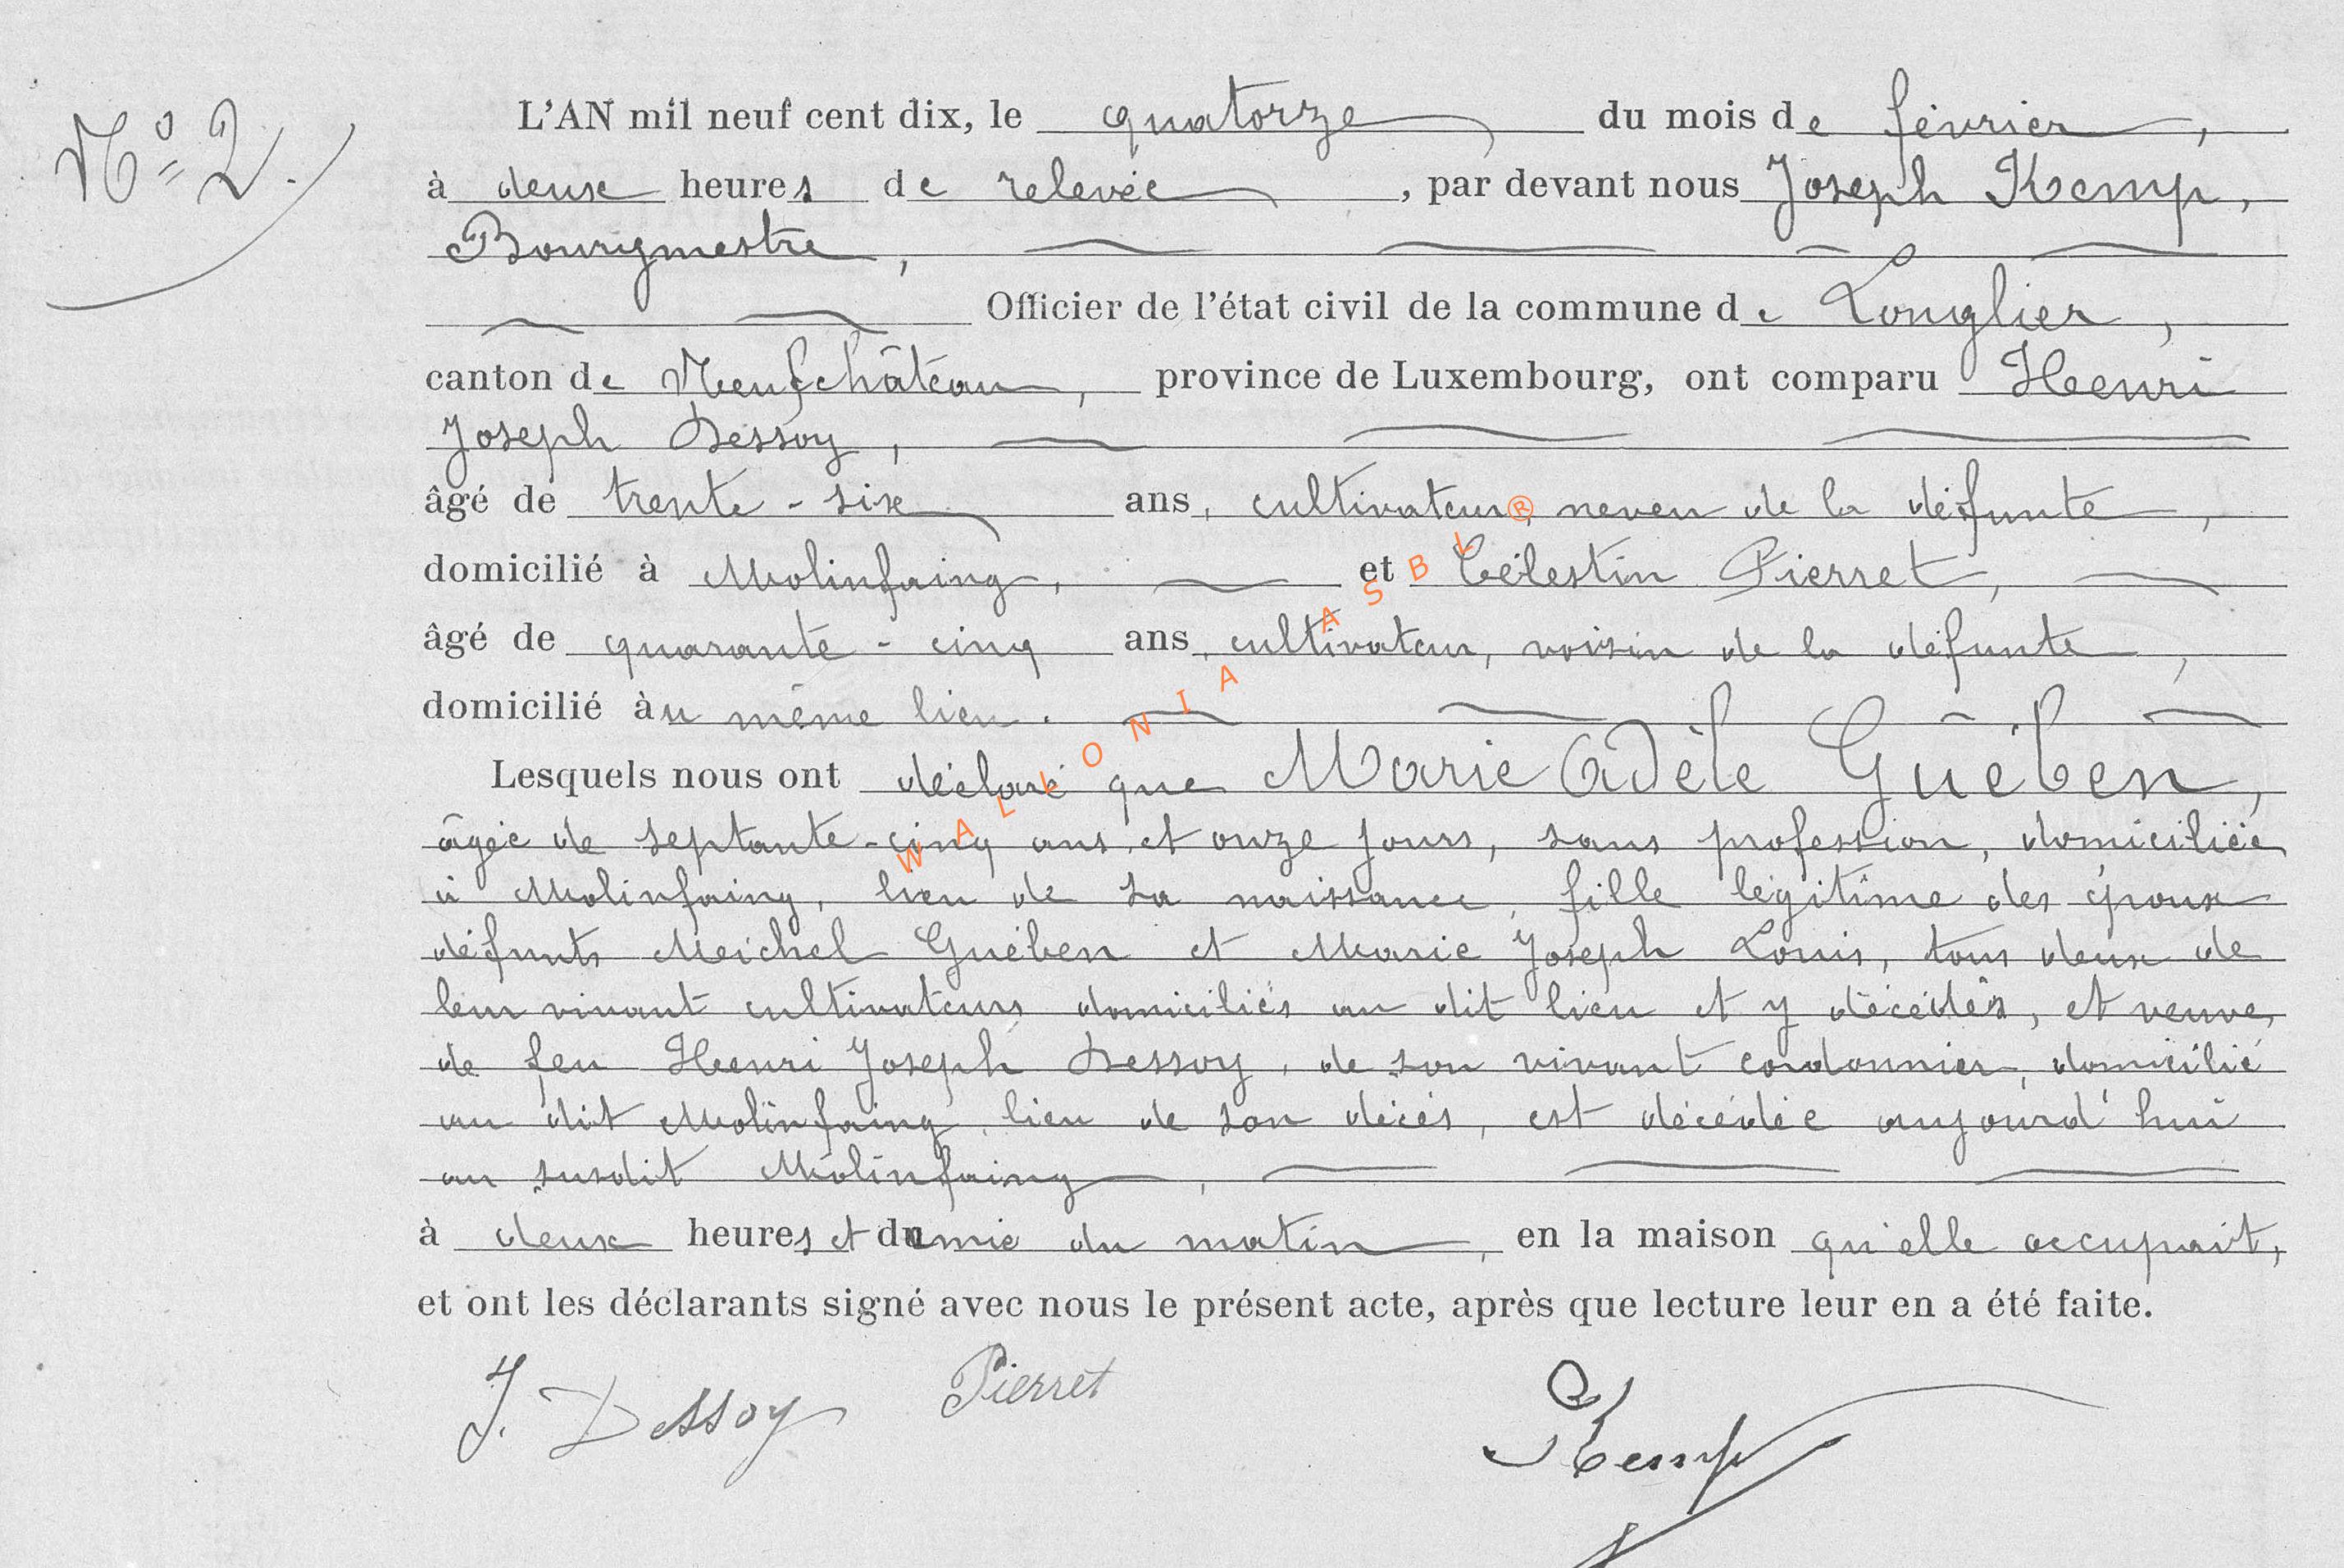 Nº 2.
L'AN mil neuf cent dix, le quatorze du mois de février,
à deux heures de relevée, par devant nous Joseph Kemp,
Bourgmestre,
Officier de l'état civil de la commune de Longlier,
canton de Neufchâteau, province de Luxembourg, ont comparu Henri
Joseph Dessoy,
âgé de trente-six ans, cultivateur, neveu de la défunte,
domicilié à Molinfaing, et Célestin Pierret,
âgé de quarante-cinq ans, cultivateur, voisin de la défunte,
domicilié au même lieu.
Lesquels nous ont déclaré que Marie Adèle Guében,
âgée de septante-cinq ans et onze jours, sans profession, domiciliée
à Molinfaing, lieu de sa naissance, fille légitime des époux
défunts Meichel Guében et Marie Joseph Louis, tous deux de
leur vivant cultivateurs domiciliés au dit lieu et y décédés, et veuve,
de feu Henri Joseph Dessoy, de son vivant cordonnier, domicilié
au dit Molinfaing, lieu de son décès, est décédée aujourd'hui
au susdit Molinfaing,
à deux heures et demie du matin, en la maison qu'elle occupait,
et ont les déclarants signé avec nous le présent acte, après que lecture leur en a été faite.
J. Dessoy Pierret Kemp
WALLONIA ASBL ®